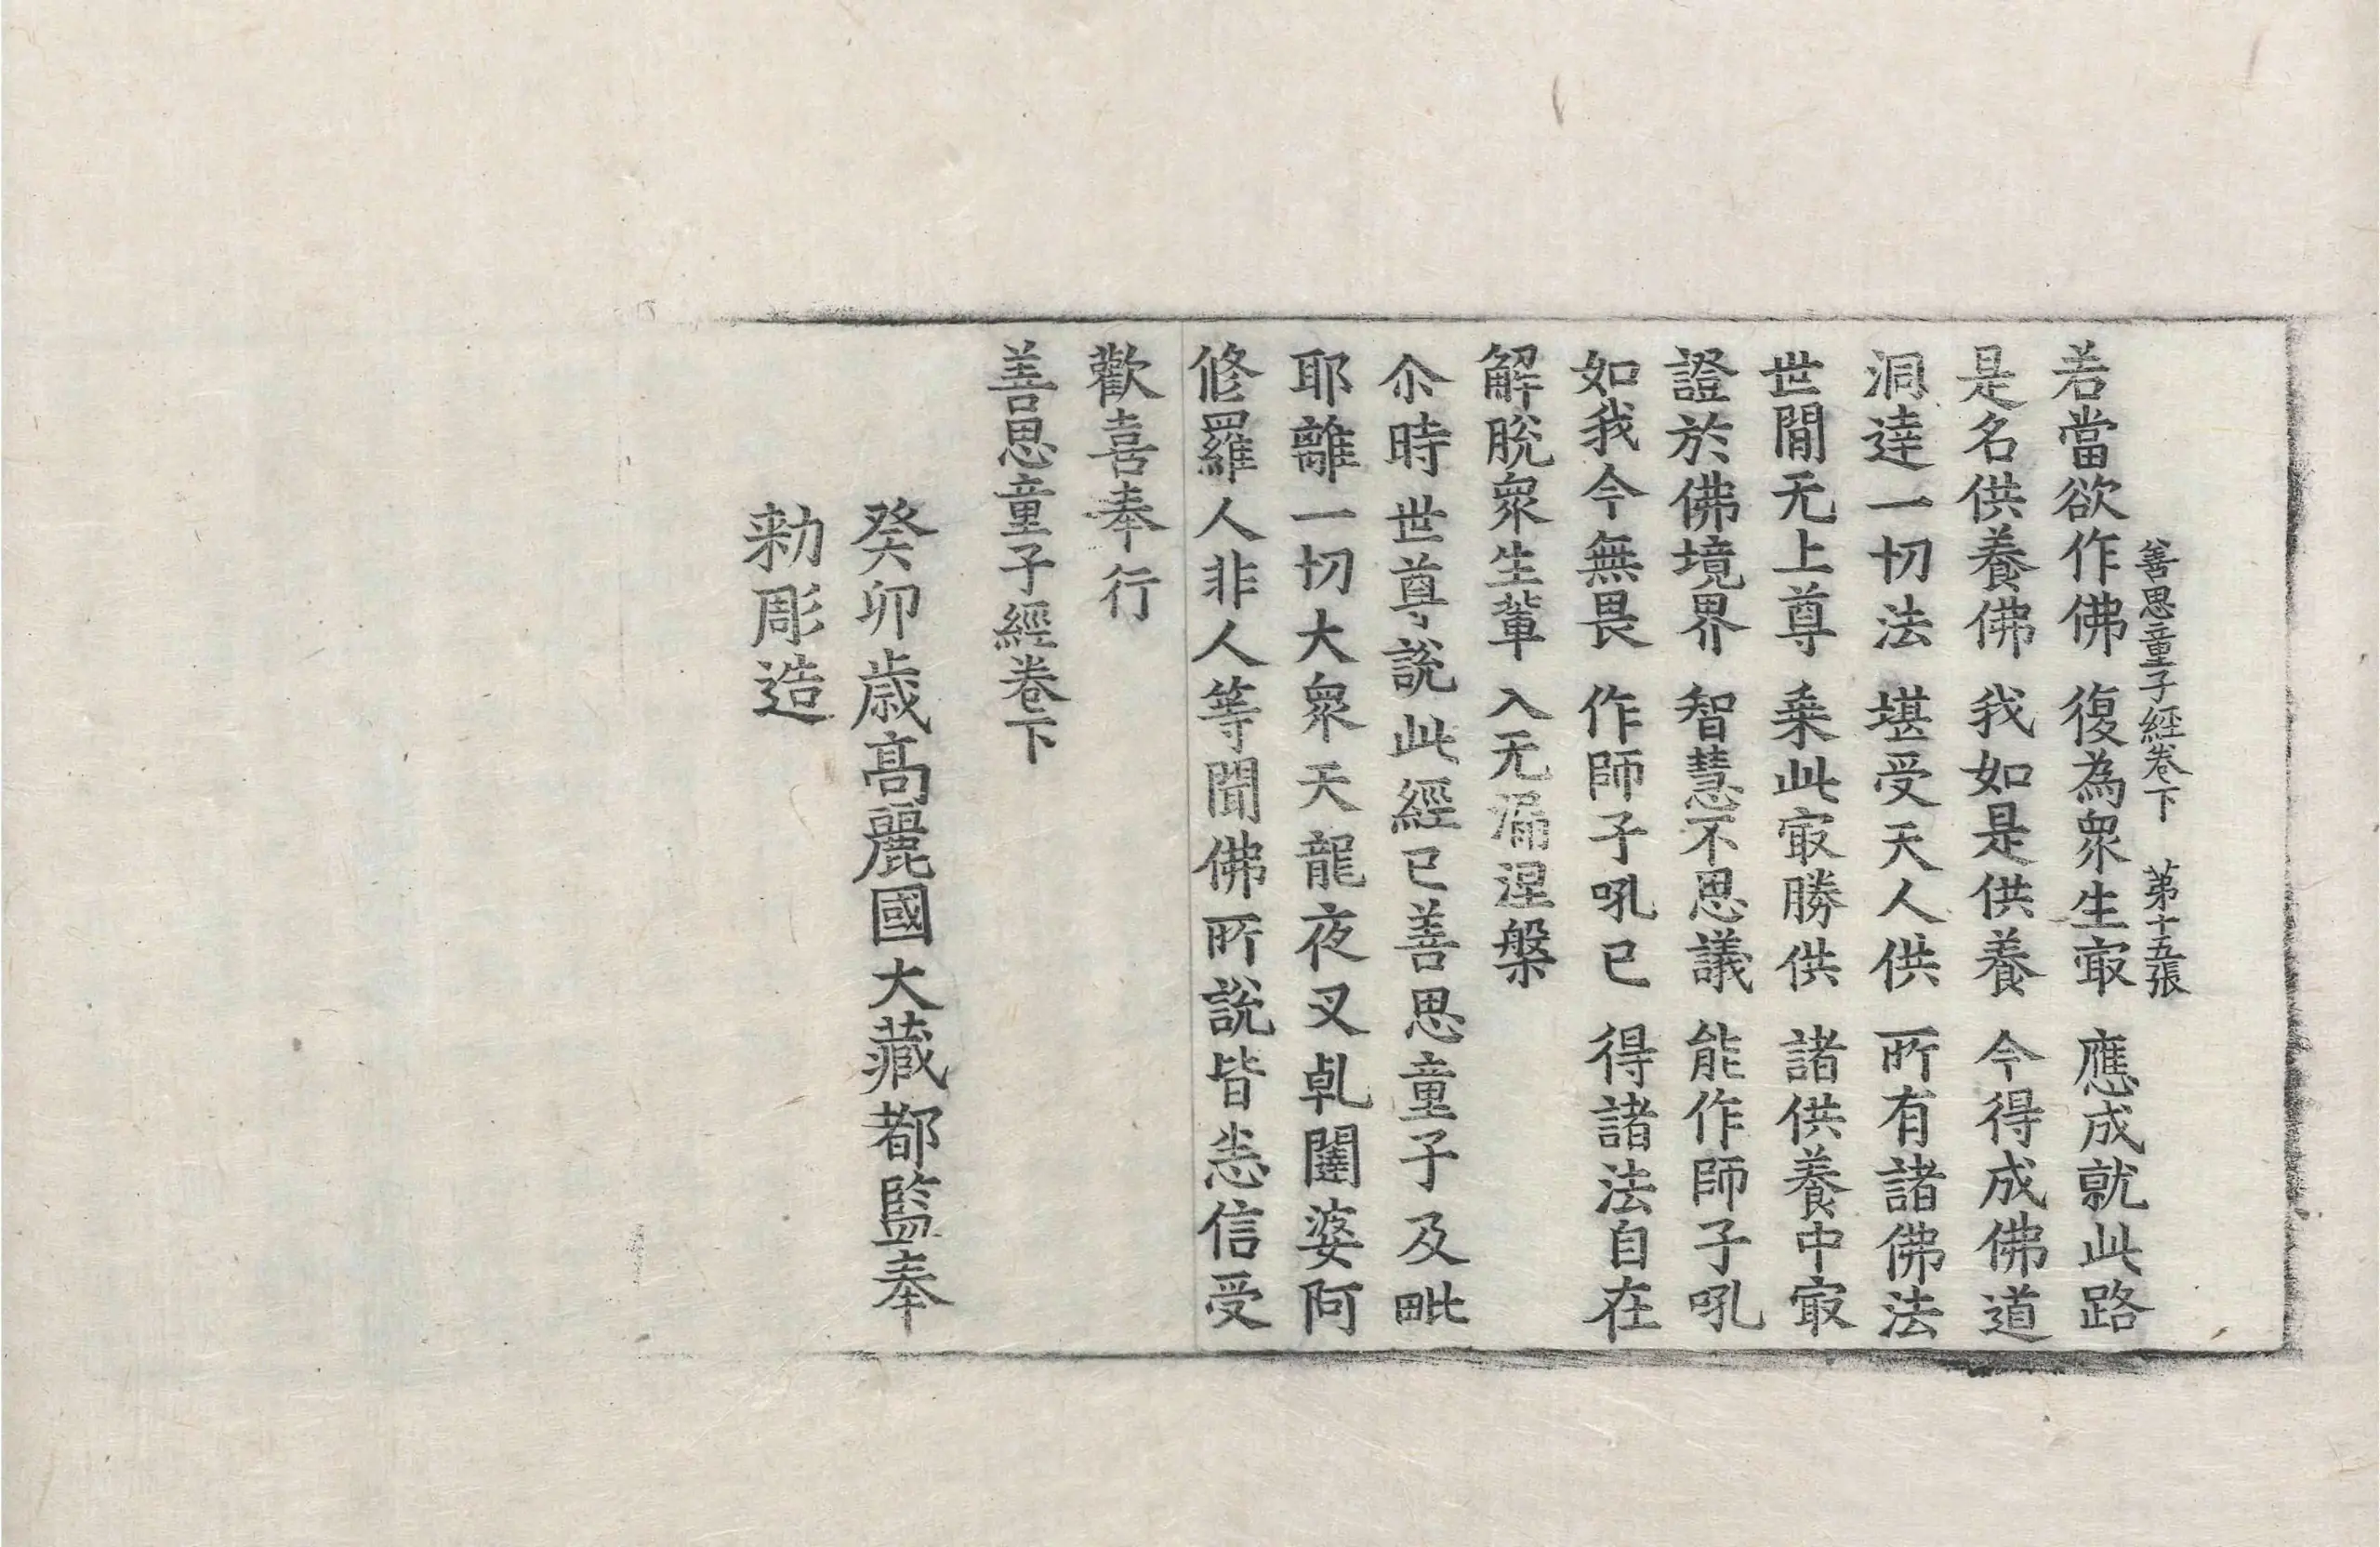 善思童子經卷下 第十五張
若當欲作佛 復為衆生㝡 應成就此路
是名供養佛 我如是供養 今得成佛道
洞達一切法 堪受天人供 所有諸佛法
世閒无上尊 乗此㝡勝供 諸供養中㝡
證於佛境界 智慧不思議 能作師子吼
如我今無畏 作師子吼已 得諸法自在
解脫衆生輩 入无漏涅槃
尒時世尊說此經已善思童子及毗
耶離一切大衆天龍夜叉乹闥婆阿
修羅人非人等聞佛所說皆悉信受
歡喜奉行
善思童子經卷下
癸卯歲高麗國大藏都監奉
勑彫造